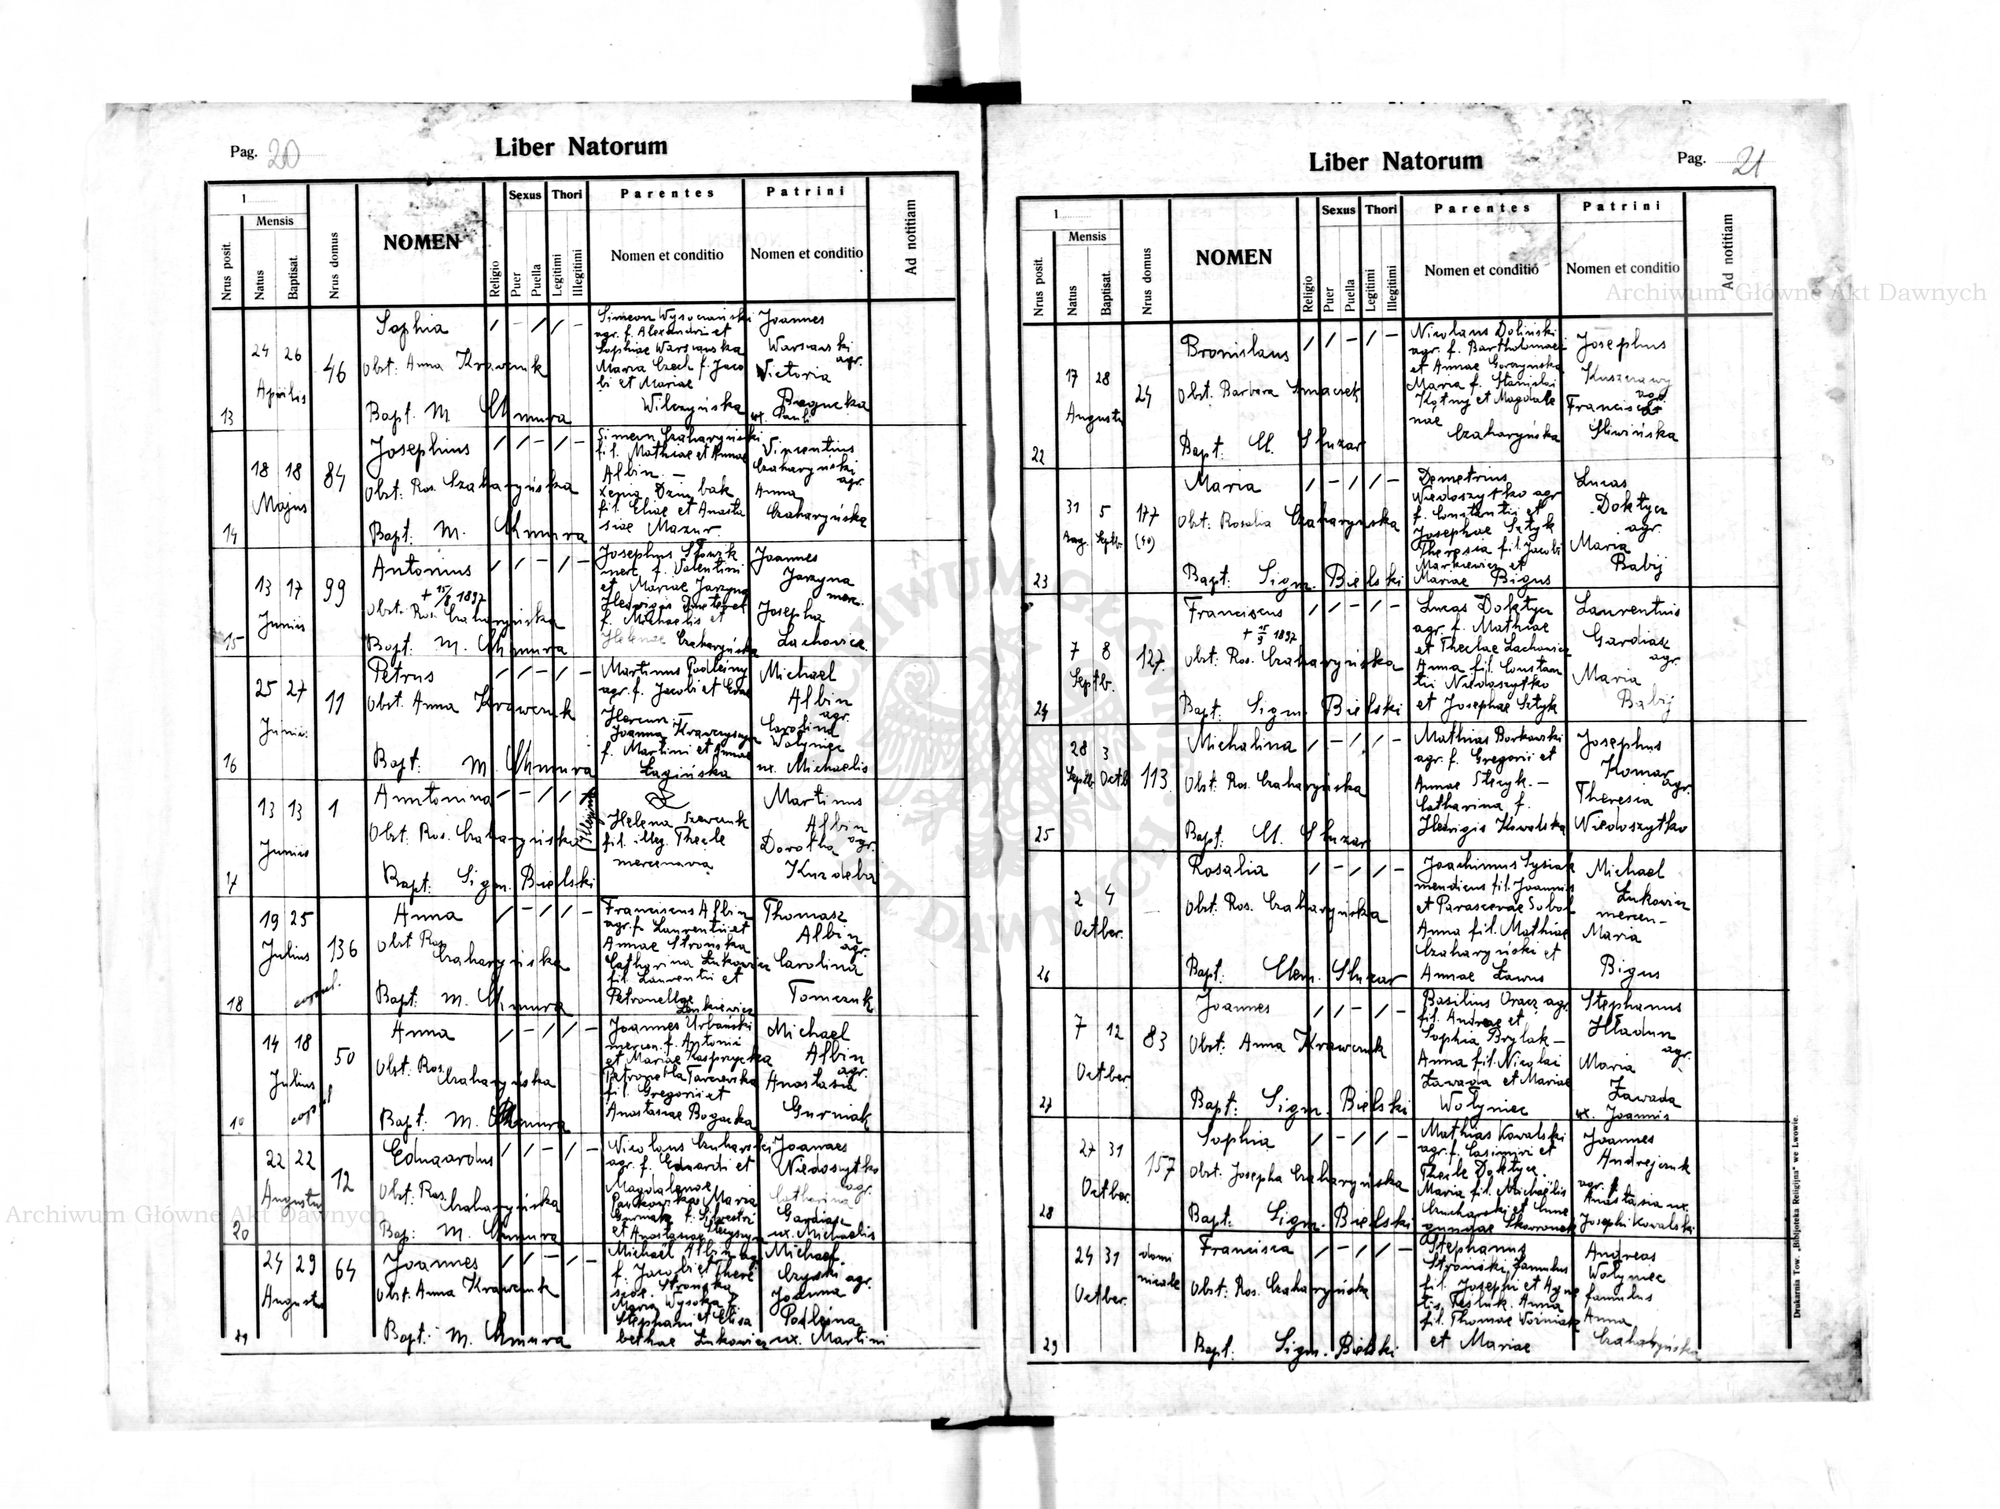 Pag. 20
Liber Natorum
1
Mensis
Nrus posit.
Natus
Baptisat.
Nrus domus
NOMEN
Religio
Sexus
Puer
Puella
Thori
Legitimi
Illegitimi
Parentes
Nomen et conditio
Patrini
Nomen et conditio
Ad notitiam
13
24 26
Aprilis
46
Sophia
Obst. Anna Krawczuk
Bapt. M Chmura
agr. f. Alexandri et
Sophiae Warszawska
Maria Czech f. Jaco
bi et Mariae
Wilczyńska
Joannes
Warszawski
agr.
Victoria
ux. Pauli
14
18 18
Majus
84
Josephus
Obst: Ros. Czaharyńska
Bapt. M. Chmura
Simeon Czaharyński
fil. Mathiae et Annae
Albin. —
fil. Eliae et Anasta
siae Mazur.
Vincentius
Czaharyński
agr.
Anna
Czaharyńska
15
13 17
Junius
99
Antonius
+ 15/8 1897
Obst. Ros. Czaharyńska
Bapt. M. Chmura
Josephus
merc. f. Valentini
et Mariae Jarzyna
Hedvigis
f. Michaelis et
Helenae Czaharyńska
Joannes
Jarzyna
merc.
Josepha
Lachowicz.
16
25 27
Junii
11
Petrus
Obst. Anna Krawczuk
Bapt. M. Chmura
Martinus Podleśny
agr. f. Jacobi et Evae
Joanna Krawczyszyn
f. Martini et Annae
Łagińska
Michael
Albin
agr.
Carolina
Wołyniec
ux. Michaelis
17
13 13
Junius
1
Anntonina
Obst. Ros. Czaharyńska
Bapt: Sigm. Bielski
Helena Szewczuk
fil. illeg. Thecle
mercenaria
Martinus
Albin
agr.
Dorothea
Kurdeba
18
19 25
Julius
136
Anna
Obst Ros.
Czaharyńska
Bapt: M. Chmura
Franciscus Albin
agr. f. Laurentii et
Annae Strońska
Catharina Łukowicz
fil. Laurentii et
Petronellae
Thomasz
Albin
agr.
Carolina
Tomczuk
14 18
Julius
50
Anna
Obst. Ros.
Czaharyńska
Bapt: M. Chmura
Joannes Urbański
mercen. f. Antonii
et Mariae Kasprzycka
Petronella
fil. Gregorii et
Anastasiae Bogacka
Michael
Albin
agr.
Anastasia
Gurniak
20
22 22
Augustus
12
Eduardus
Obst: Ros.
Czaharyńska
Bap: M. Chmura
Nicolaus
agr. f. Eduardi et
Magdalenae
Maria
Gurniak f. Silvestri
et Anastasiae
Joannes
Niedoszytko
agr.
Catharina
Gardiasz
ux. Michaelis
21
24 29
Augustus
64
Joannes
Obst. Anna Krawczuk
Bapt: M. Chmura
Michael Albin agr.
f. Jacobi et There
siae. Strońska
Maria Wysocka f.
Stephani et Elisa
bethae Łukowicz
Michael
Czyski agr.
Joanna
Podleśna
ux. Martini
Liber Natorum
Pag. 21
1
Mensis
Nrus posit.
Natus
Baptisat.
Nrus domus
NOMEN
Religio
Sexus
Puer
Puella
Thori
Legitimi
Illegitimi
Parentes
Nomen et conditio
Patrini
Nomen et conditio
Ad notitiam
22
17 28
Augusti
24
Bronislaus
Obst. Barbara Smaczek
Bapt. Cl. Sluzar
Nicolaus Doliński
agr. f. Bartholomaei
et Annae Gorzyńska
Maria f. Stanislai
Kątny et Magdale
nae
Czaharyńska
Josephus
agr.
Francisca
Śliwińska
23
31 5
Aug. Septb.
177
(40)
Maria
Obst: Rosalia Czaharyńska
Bapt: Sigm. Bielski
Demetrius
Niedoszytko agr
f. Constantii et
Josephae Sztyk
Theresia fil. Jacobi
Markiewicz et
Mariae Bigus
Lucas
Doktycz
agr.
Maria
Babij
24
7 8
Septb.
127
Franciscus
+ 15/9 1897
Obst: Ros. Czaharyńska
Bapt: Sigm. Bielski
Lucas Doktycz
agr. f. Mathiae
et Theclae Lachowicz
Anna fil. Constan
tii Niedoszytko
et Josephae Sztyk
Laurentius
Gardiasz
agr.
Maria
Babij
25
28 3
Septb Octb
113
Michalina
Obst. Ros. Czaharyńska
Bapt. Cl. Sluzar
Mathias Borkowski
agr. f. Gregorii et
Annae Steczyk. —
Catharina f.
Hedvigis Kowalska
Josephus
Komar
agr.
Theresia
Niedoszytko
26
2 4
Octber.
Rosalia
Obst: Ros. Czaharyńska
Bapt. Clem. Sluzar
Joachimus Sysiak
mendicus fil. Joannis
et Parascevae Sobol
Anna fil. Mathiae
Czaharyński et
Annae Ławrus
Michael
Łukowicz
mercen-
Maria
Bigus
27
7 12
Octber
83
Joannes
Obst: Anna Krawczuk
Bapt: Sigm. Bielski
Basilius Oracz agr.
fil. Andreae et
Sophia Brylak —
Anna fil. Nicolai
Zawada et Mariae
Wołyniec
Stephanus
Hładun
agr.
Maria
Zawada
ux. Joannis
28
27 31
Octber.
157
Sophia
Obst. Josepha Czaharyńska
Bapt: Sigm. Bielski
Mathias Kowalski
agr. f. Casimiri et
Thecle Doktycz.
Maria fil. Michaëlis
Czucharski et Cune
gundae Skowronek
Joannes
Andrejczuk
agr. f
Anastasia ux.
Josephi Kowalski
29
24 31
Octber.
domi
nicale
Francisca
Obst: Ros. Czaharyńska
Bapt. Sigm. Bielski
Stephanus
Stroński famulus
fil. Josephi et Agne
tis Tesluk. Anna
fil. Thomae Woźniak
et Mariae
Andreas
Wołyniec
famulus
Anna
Czaharyńska
Drukarnia Tow. „Biblioteka Religijna" we Lwowie.
Archiwum Główne Akt Dawnych
Archiwum Główne Akt Dawnych
ARCHIWUM GŁÓWNE AKT DAWNYCH